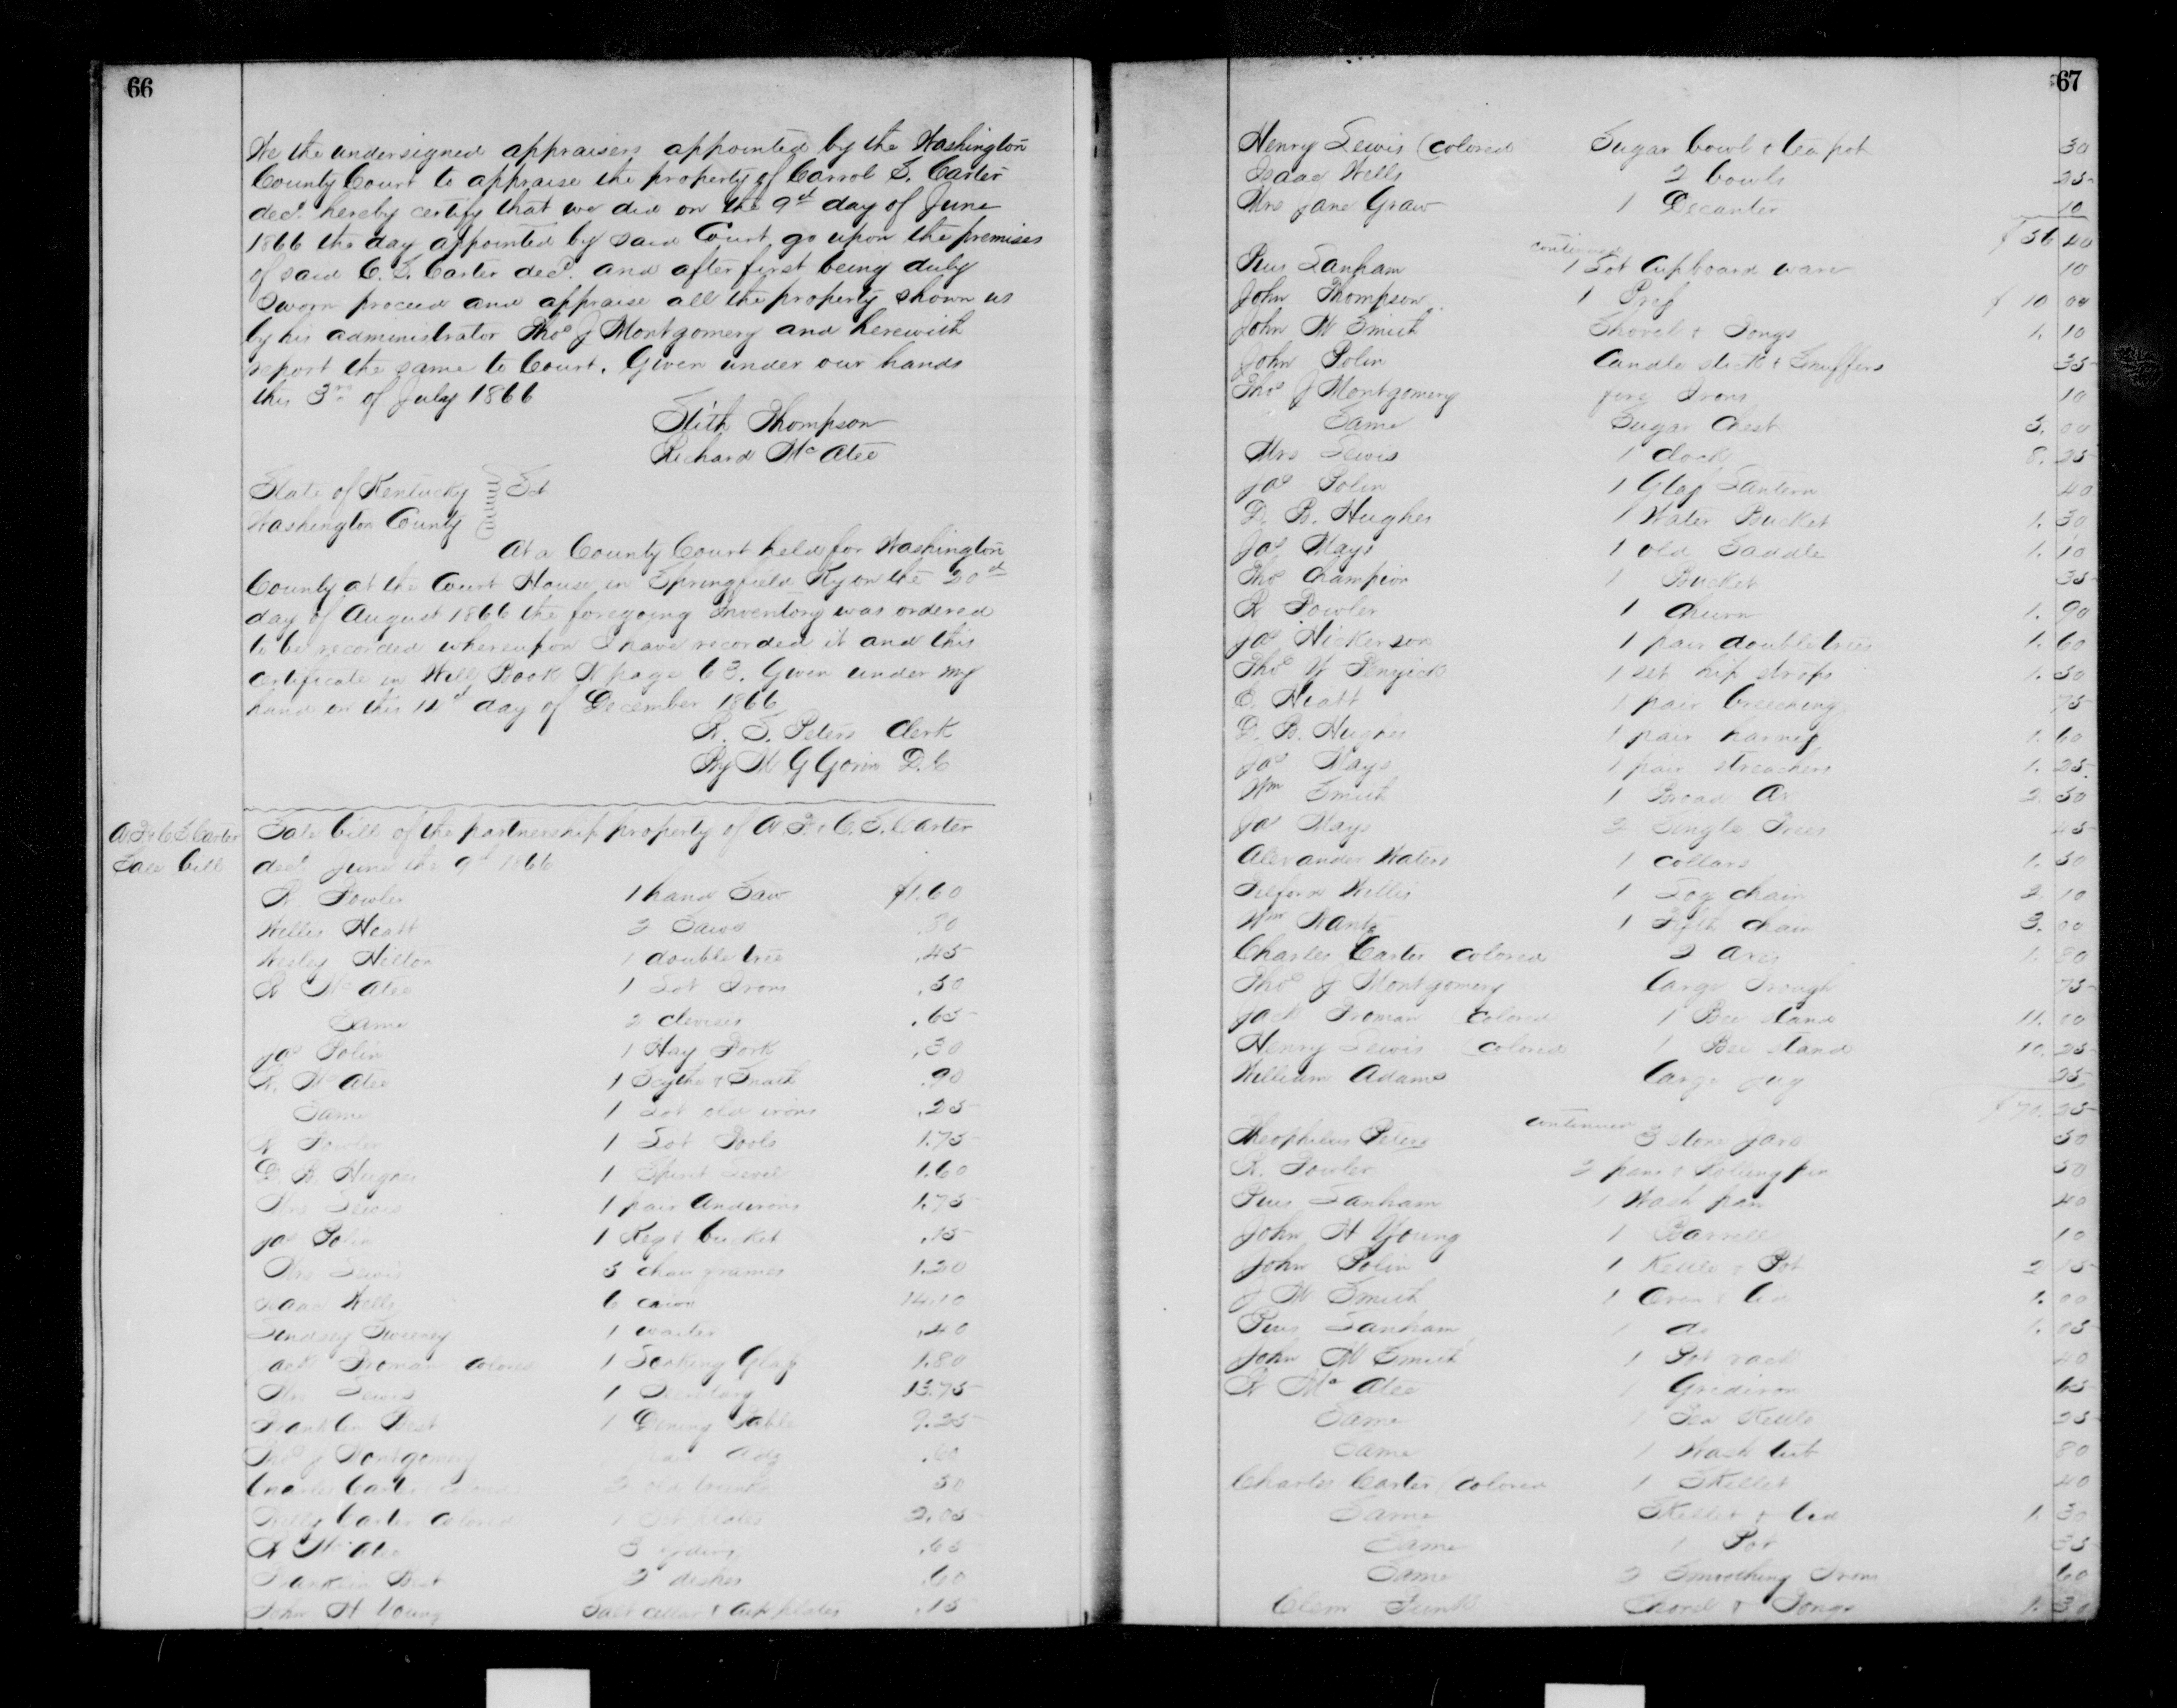 66
We the undersigned appraisers appointed by the Washington
County Court to appraise the property of Carrol S. Carter
decd. hereby certify that we did on the 9th day of June
1866 the day appointed by said Court, go upon the premises
of said C. S. Carter decd. and after first being duly
Sworn proceed and appraise all the property shown us
by his administrator Thos J Montgomery and herewith
report the same to Court. Given under our hands
this 3rd of July 1866
Stith Thompson
Richard McAtee
State of Kentucky
Washington County } Sct
At a County Court held for Washington
County at the Court House in Springfield Ky on the 20th
day of August 1866 the foregoing inventory was ordered
to be recorded whereupon I have recorded it and this
certificate in Will Book N page 63. Given under my
hand on this day of December 1866
R. S. Peters Clerk
By M G Gorin D.C
C. S. Carter
Sale bill
Sale bill of the partnership property of & C. S. Carter
decd. June the 9th 1866
R. Fowler 1 hand Saw $1.60
Willis Heatt 2 Saws .80
Wesley Hilton 1 double tree .45
R McAtee 1 Lot Irons .50
Same 2 clevises .65
Jas Polin 1 Hay Fork .30
R. McAtee 1 Scythe & Snath .90
Same 1 Lot old irons .25
R Fowler 1 Lot Tools 1.75
D. B. Hughes 1 Spirit Level 1.60
Mrs Lewis 1 pair Andirons 1.75
Jas Polin 1 Keg & bucket .15
Mrs Lewis 5 chair frames 1.20
Isaac Wells 6 14.10
Lindsey Sweeney 1 waiter .40
Jack Froman Colored 1 Looking Glass 1.80
Mrs Lewis 1 Secretary 13.75
Franklin Best 1 Dining Table 9.25
Thos J Montgomery .60
Charles Carter Colored 2 old trunks 50
Carter Colored 1 Set plates 2.05
R McAtee 3 .65
Franklin Best 2 dishes .60
John H Young Salt cellar & cup plates .15
67
Henry Lewis (Colored Sugar bowl & tea pot 30
Isaac Wells 2 bowls 25
Mrs Jane Graw 1 Decanter 10
$56 40
continued
Pius Lanham 1 Lot Cupboard ware 10
John Thompson 1 Press $10 00
John W Smith Shovel & Tongs 1. 10
John Polin Candle stick & Snuffers 35
Thos J Montgomery fire Irons 10
Same Sugar Chest 5. 00
Mrs Lewis 1 clock 8. 25
Jas Polin 1 Glass Lantern 40
D. B. Hughes 1 Water Bucket 1. 30
Jas Mays 1 old Saddle 1. 10
Thos Champion 1 Bucket 35
R Fowler 1 churn 1. 90
Jas Hickerson 1 pair doubletrees 1. 60
Thos W 1 set hip straps 1. 50
E. Heatt 1 pair breeching 75
D. B. Hughes 1 pair harness 1. 60
Jas Mays 1 pair streachers 1. 25
Wm Smith 1 Broad Ax 2. 50
Jas Mays 2 Single Trees 45
Alexander Waters 1 collars 1. 50
Willis 1 Log chain 2. 10
Wm Wantz 1 Fifth chain 3. 00
Charles Carter Colored 2 axes 1. 80
Thos J Montgomery large Trough 75
Jack Froman (Colored 1 Bee stand 11. 00
Henry Lewis (Colored 1 Bee stand 10. 25
William Adams large jug 25
$70. 25
continued
Theophilus Peters 3 stone Jars 50
R. Fowler 2 pans & Rolling pin 50
Pius Lanham 1 Wash pan 40
John H Young 1 Barrell 10
John Polin 1 Kettle & Pot 2 15
J W Smith 1 Oven & lid 1. 00
Pius Lanham 1 do 1. 05
John W Smith 1 Pot rack 40
R McAtee 1 Gridiron 65
Same 1 Tea Kettle 25
Same 1 Wash tub 80
Charles Carter (Colored 1 Skillet 40
Same Skillet & lid 1. 30
Same 1 Pot 35
Same 2 Smoothing Irons 60
Clem Shovel & Tongs 1. 30